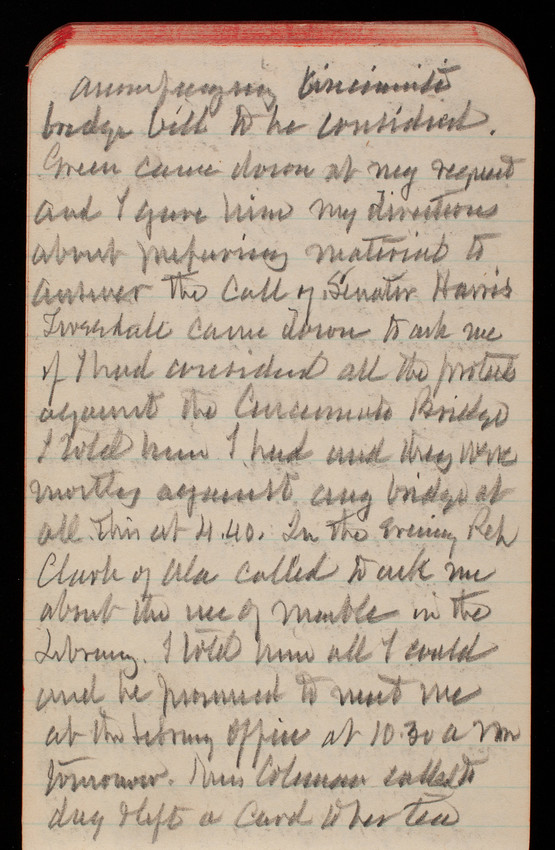 accompanying Cincinnati
bridge bill to be considered.
Green came down at my request
and I gave him my directions
about preparing material to
answer the call of Senator Harris
came down to ask me
if I had considered all the protests
against the Cincinnati Bridge
I told him I had and they were
mostly against any bridge at
all. This at 4.40. In the evening Rep
Clark of Ala called to ask me
about the use of marble in the
Library. I told him all I could
and he promised to meet me
at the Library Office at 10.30 a m
tomorrow. Miss Coleman called to
day & left a card to her tea